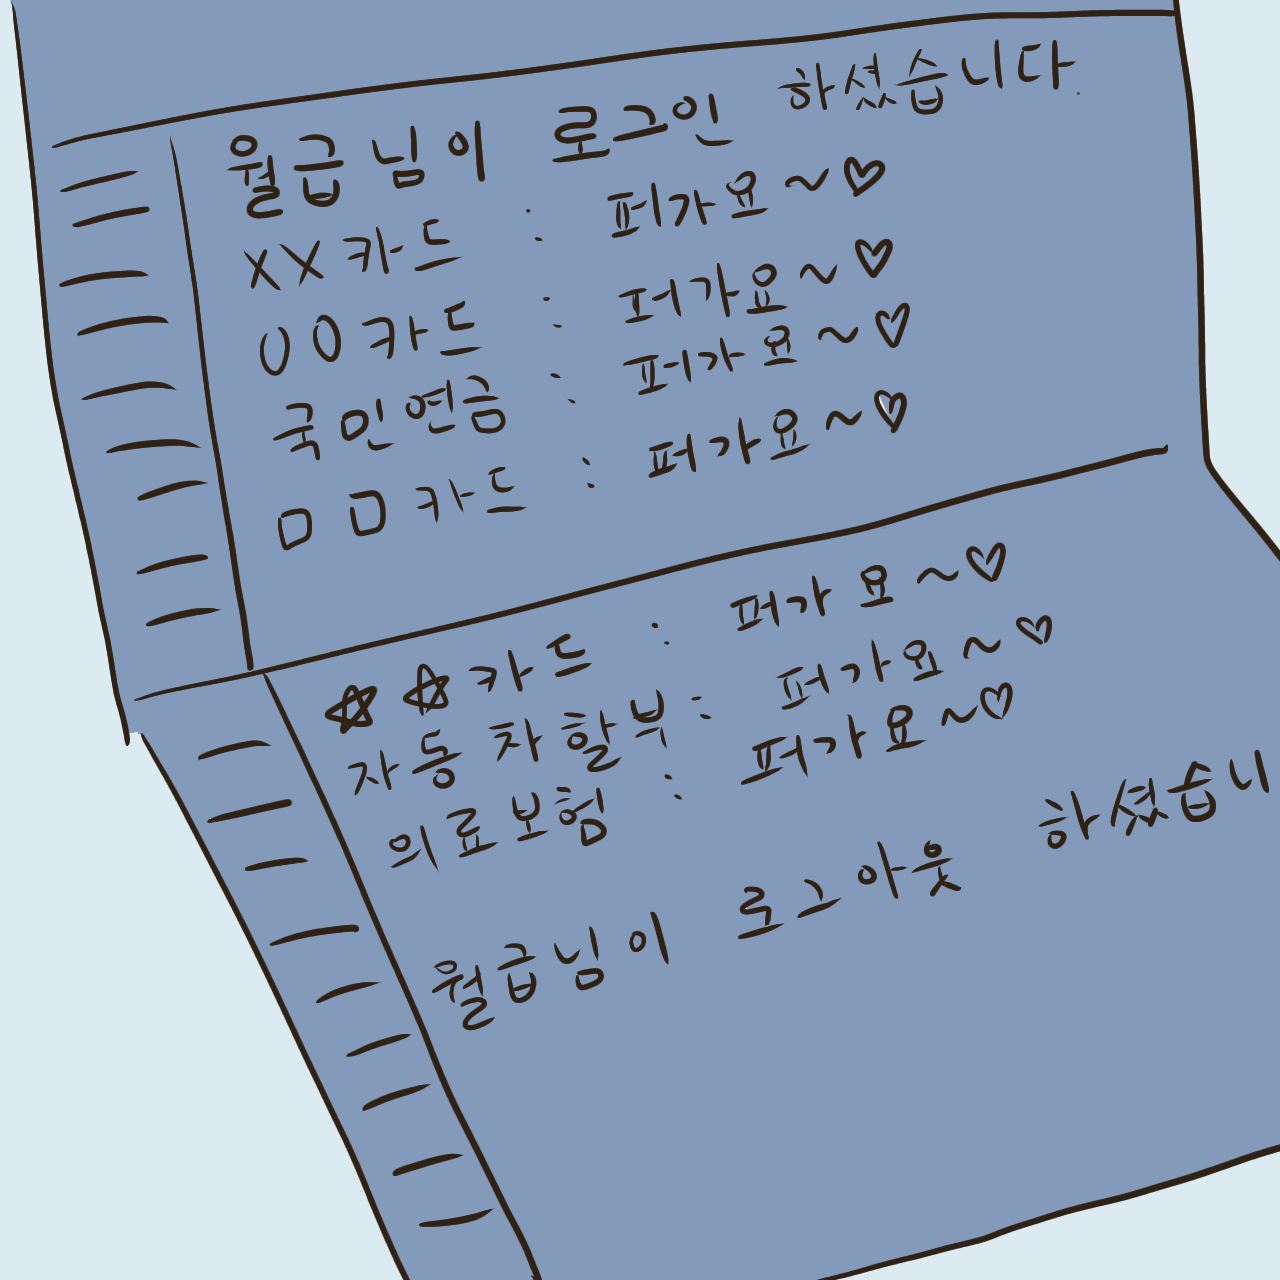 월급님이 로그인 하셨습니다.
XX카드 : 퍼가요~♡
OO카드 : 퍼가요~♡
국민연금 : 퍼가요~♡
ㅁㅁ카드 : 퍼가요~♡
☆☆카드 : 퍼가요~♡
자동차할부 : 퍼가요~♡
의료보험 : 퍼가요~♡
월급님이 로그아웃 하셨습니